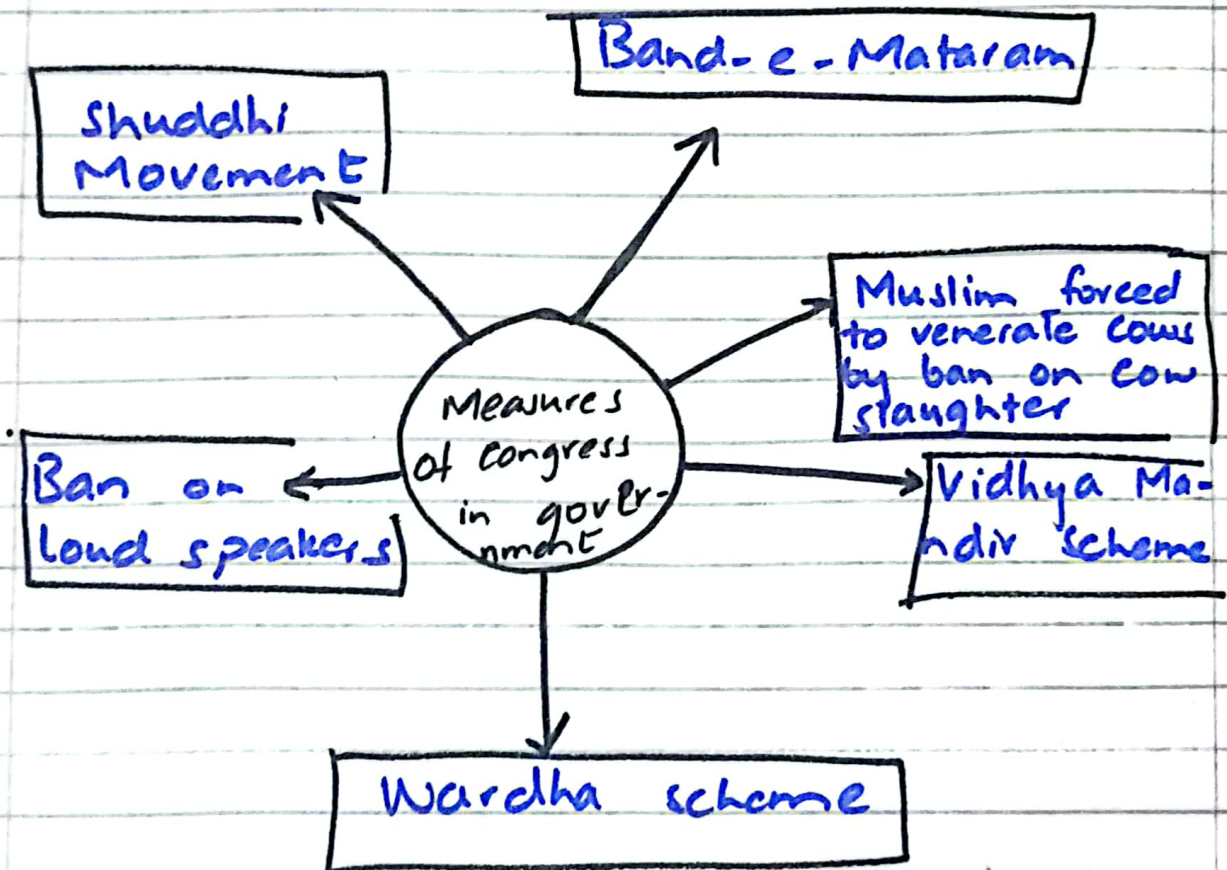 Band-e-Mataram
Shuddhi
Movement
Muslim forced
to venerate cows
by ban on cow
slaughter
Measures
of congress
in gover-
nment
Ban on
loud speakers
Vidhya Ma-
ndir scheme
Wardha scheme